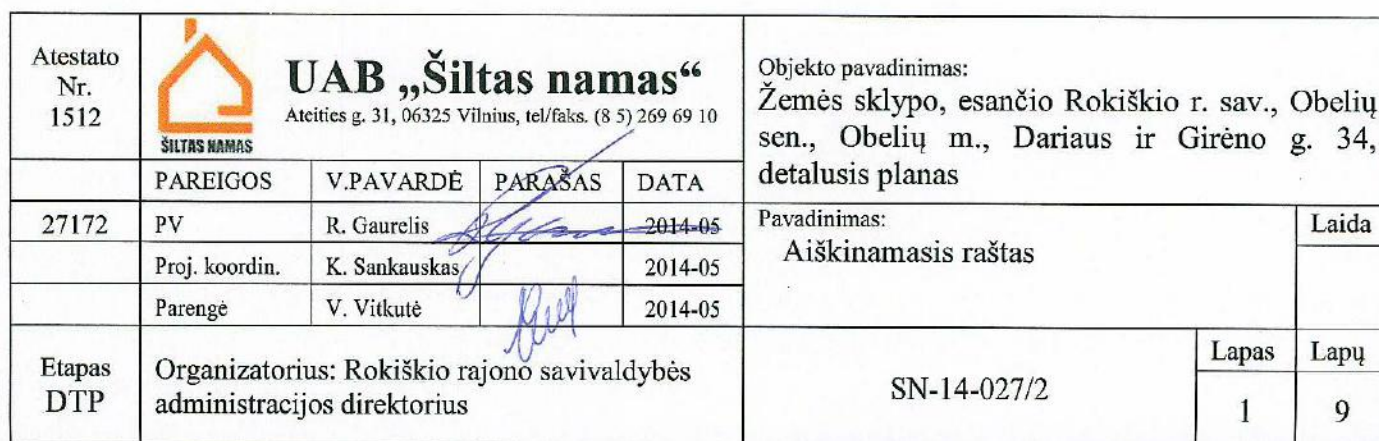 Atestato
Nr.
1512
ŠILTAS NAMAS
UAB „Šiltas namas“
Ateities g. 31, 06325 Vilnius, tel/faks. (8 5) 269 69 10
Objekto pavadinimas:
Žemės sklypo, esančio Rokiškio r. sav., Obelių
sen., Obelių m., Dariaus ir Girėno g. 34,
detalusis planas
PAREIGOS V.PAVARDĖ PARAŠAS DATA
27172 PV R. Gaurelis 2014-05
Proj. koordin. K. Sankauskas 2014-05
Parengė V. Vitkutė 2014-05
Pavadinimas:
Aiškinamasis raštas
Laida
Etapas
DTP
Organizatorius: Rokiškio rajono savivaldybės
administracijos direktorius
SN-14-027/2
Lapas Lapų
1 9